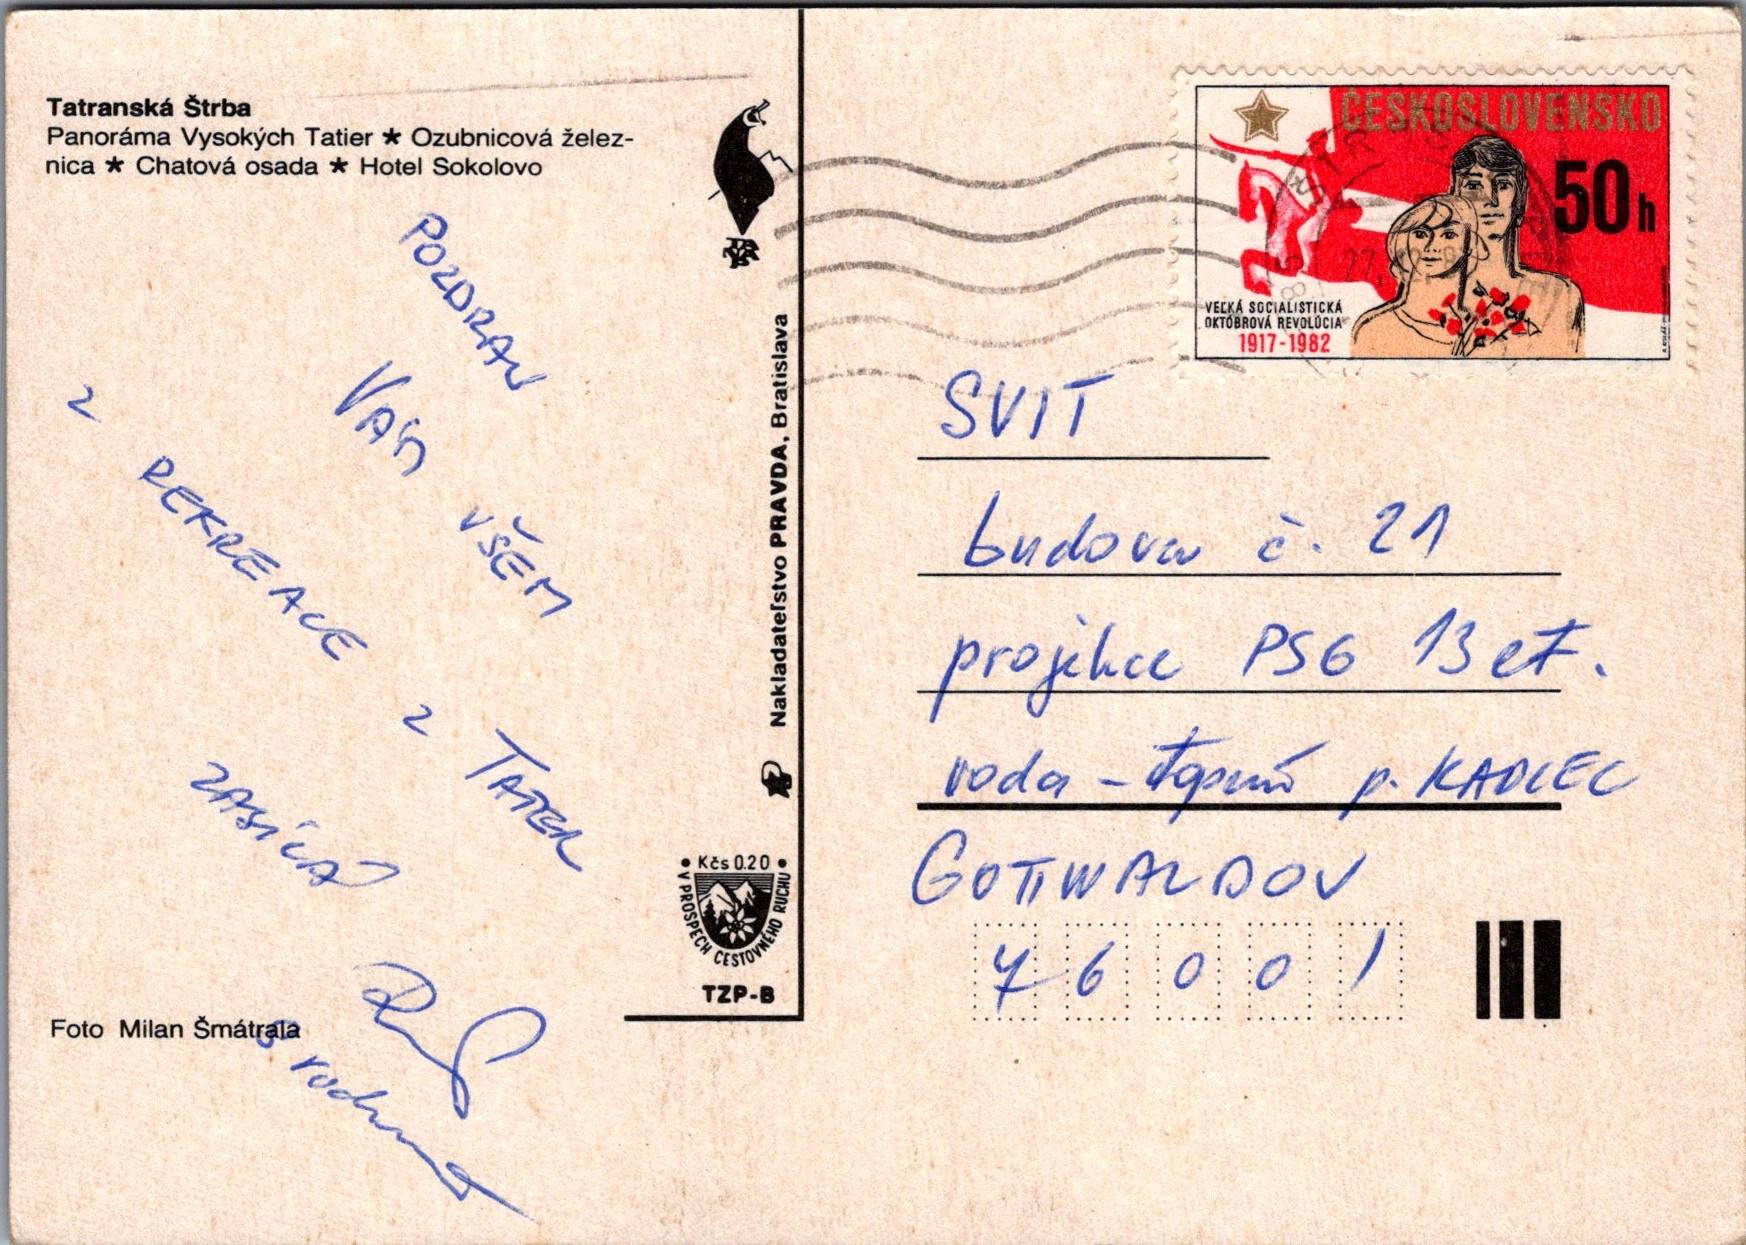 Tatranská Štrba
Panoráma Vysokých Tatier ★ Ozubnicová želez-
nica ★ Chatová osada ★ Hotel Sokolovo
POZDRAV
VÁM
VŠEM
Z
REKREACE
Z
TATER
ZASÍLÁ
S rodinou
Foto Milan Šmátrala
Nakladateľstvo PRAVDA, Bratislava
• Kčs 0.20 •
V PROSPECH CESTOVNÉHO RUCHU
TZP-B
ČESKOSLOVENSKO
50 h
VEĽKÁ SOCIALISTICKÁ
OKTÓBROVÁ REVOLÚCIA
1917-1982
SVIT
budova č. 21
projekce PSG 13 et.
voda - topení p. KADLEC
GOTTWALDOV
76001